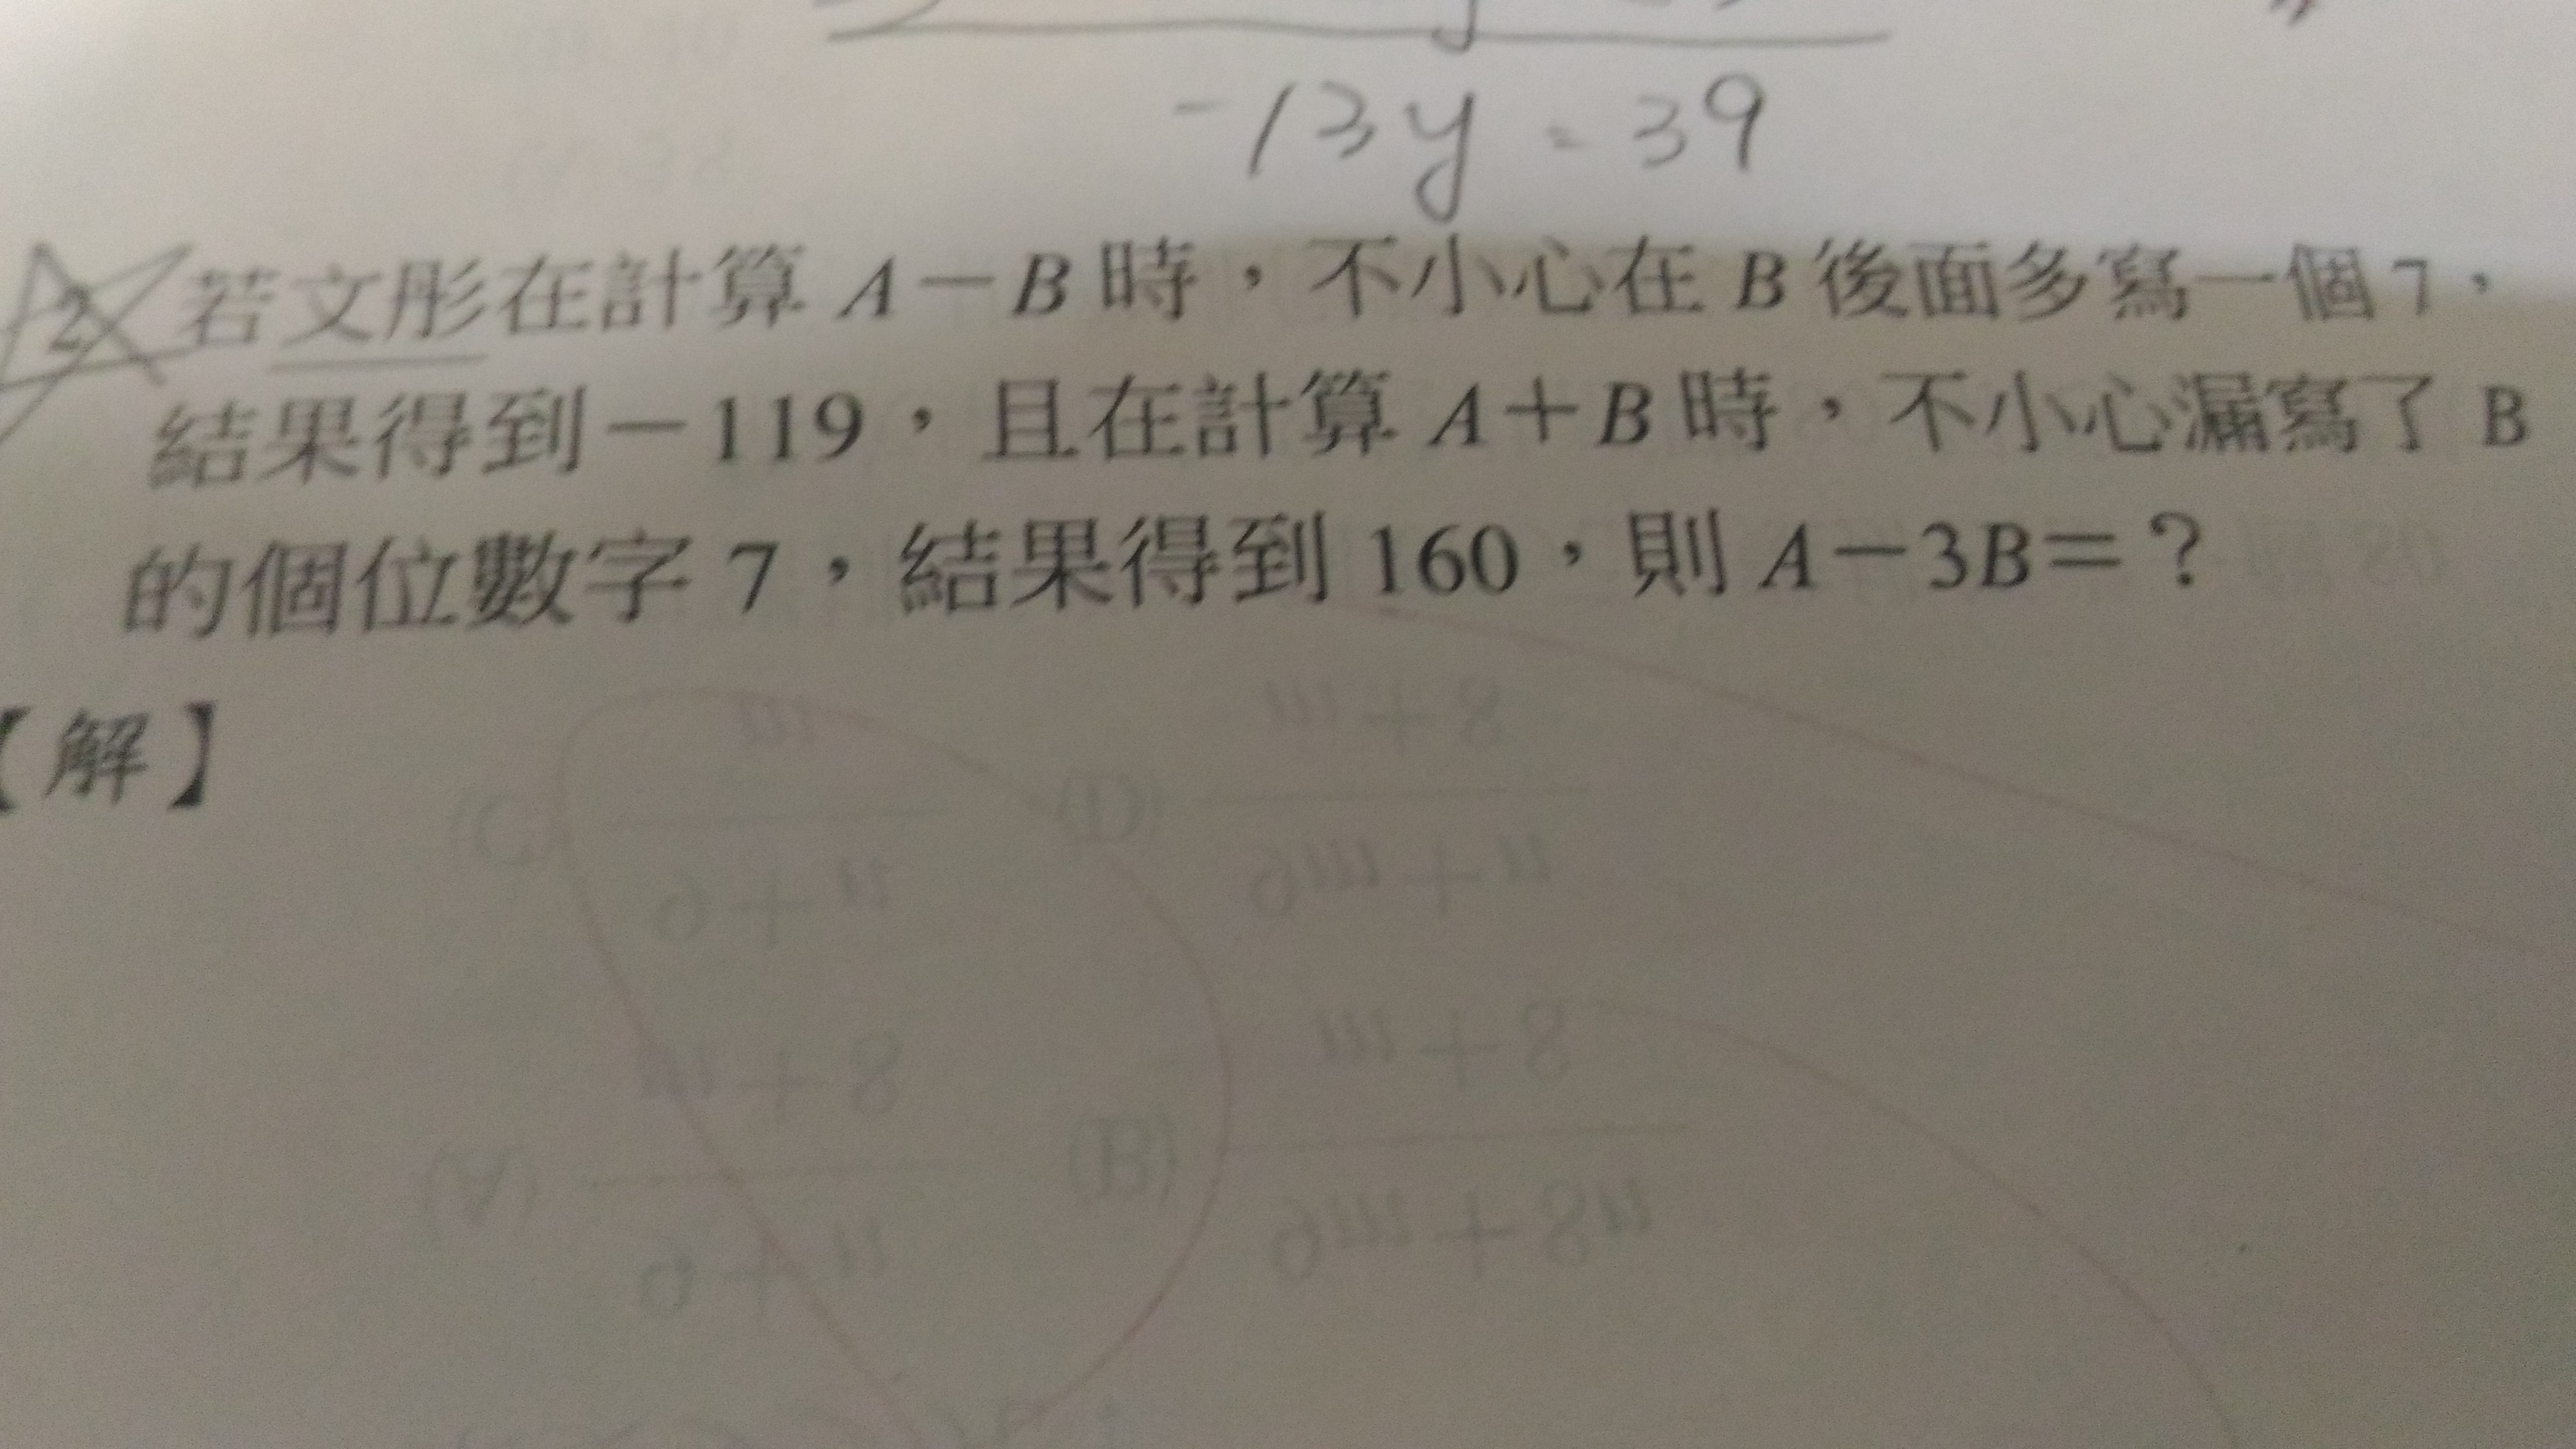 -13y = 39
2. 若文彤在計算 A－B 時，不小心在 B 後面多寫一個 7，
結果得到－119，且在計算 A＋B 時，不小心漏寫了 B
的個位數字 7，結果得到 160，則 A－3B＝？
【解】